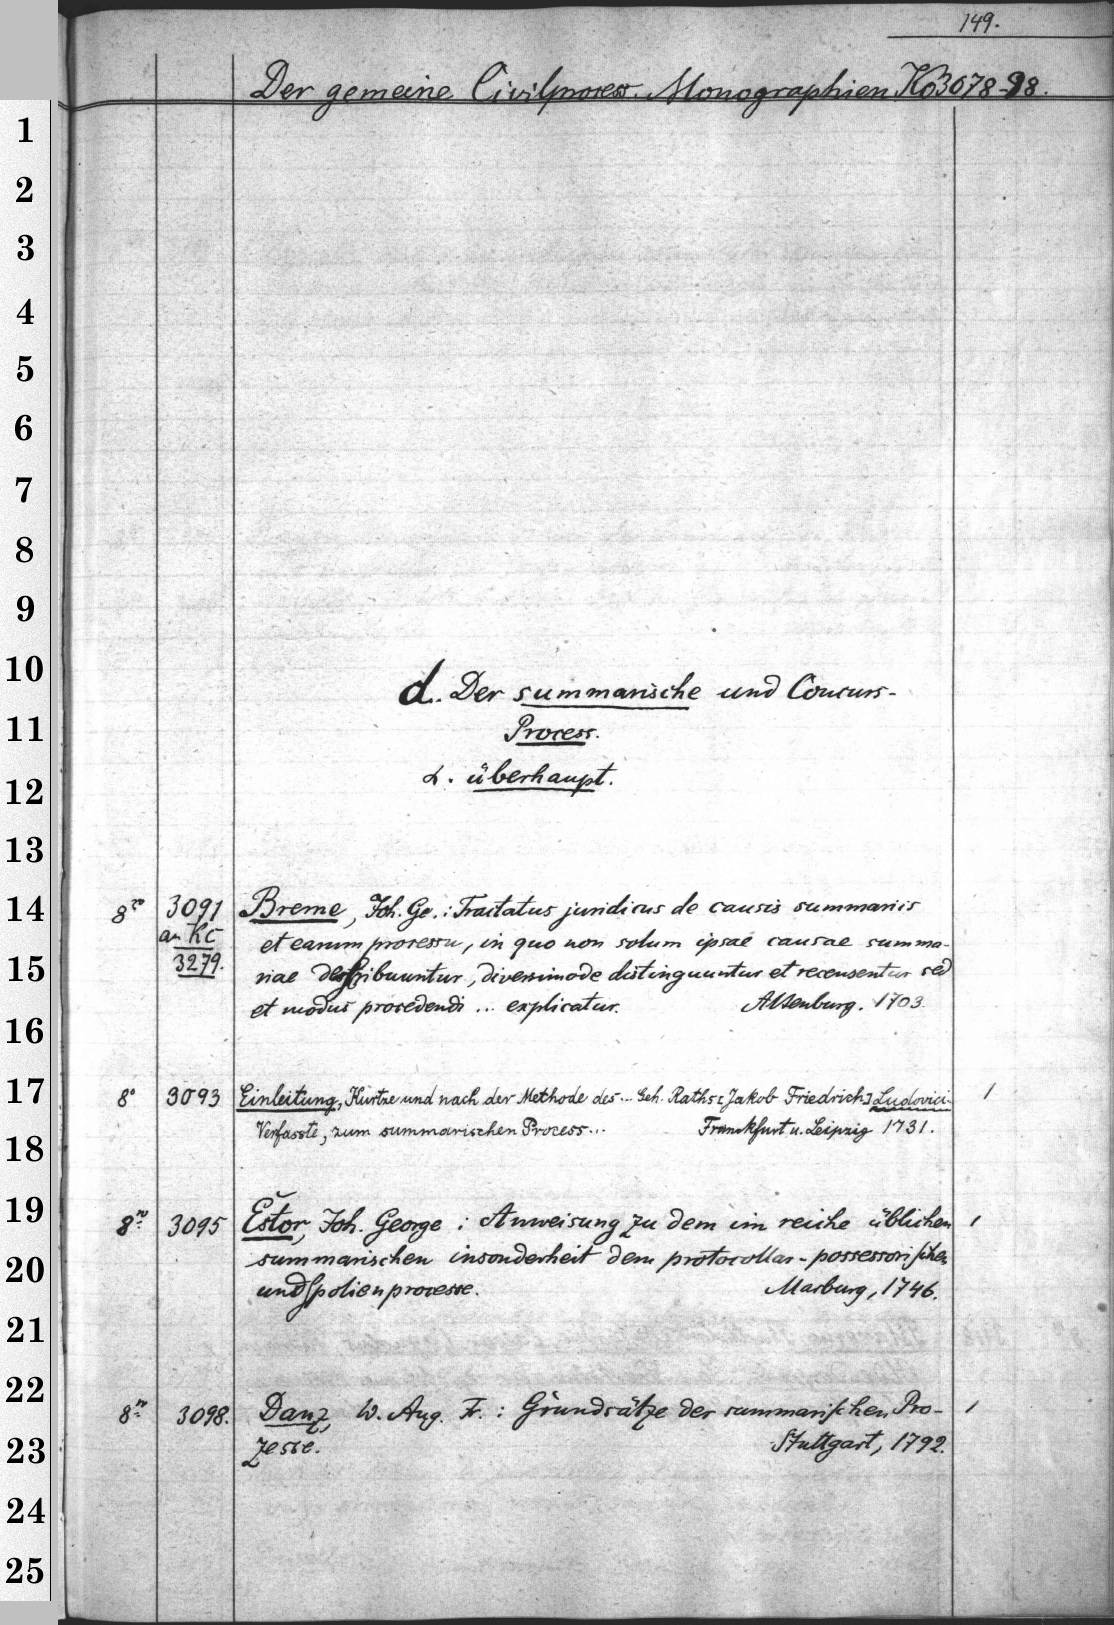 149.
Der gemeine Civilprocess. Monographien Ko3078-98.
1
2
3
4
5
6
7
8
9
10
d. Der summarische und Concurs-
11
Process.
12
α. überhaupt.
13
14
8vo 3091 Breme, Joh. Ge.: Tractatus juridicus de causis summariis
an Kc et earum processu, in quo non solum ipsae causae summa-
15
3279. riae describuntur, diversimode distinguuntur et recensentur sed
et modus procedendi ... explicatur. Altenburg. 1703.
16
17
8° 3093 Einleitung, Kurtze und nach der Methode des... Geh. Raths [Jakob Friedrich] Ludovici 1
Verfasste, zum summarischen Process... Franckfurt u. Leipzig 1731.
18
19
8vo 3095 Estor, Joh. George: Anweisung zu dem im reiche üblichen 1
20
summarischen insonderheit dem protocollar-possessorischen
und spolienprocesse. Marburg, 1746.
21
22
8vo 3098. Danz, W. Aug. Fr.: Grundsätze der summarischen Pro- 1
23
zesse. Stuttgart, 1792.
24
25